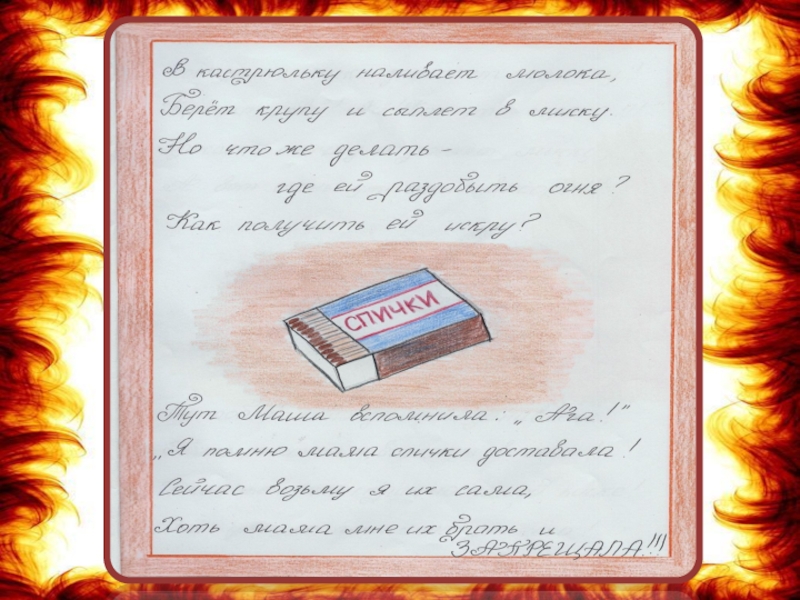 В кастрюльку наливает молока,
Берёт крупу и сыплет в миску.
Но что же делать -
где ей раздобыть огня?
Как получить ей искру?
СПИЧКИ
Тут Маша вспомнила: „Ага!"
„Я помню мама спички доставала!
Сейчас возьму я их сама,
Хоть мама мне их брать и
ЗАПРЕЩАЛА!!!